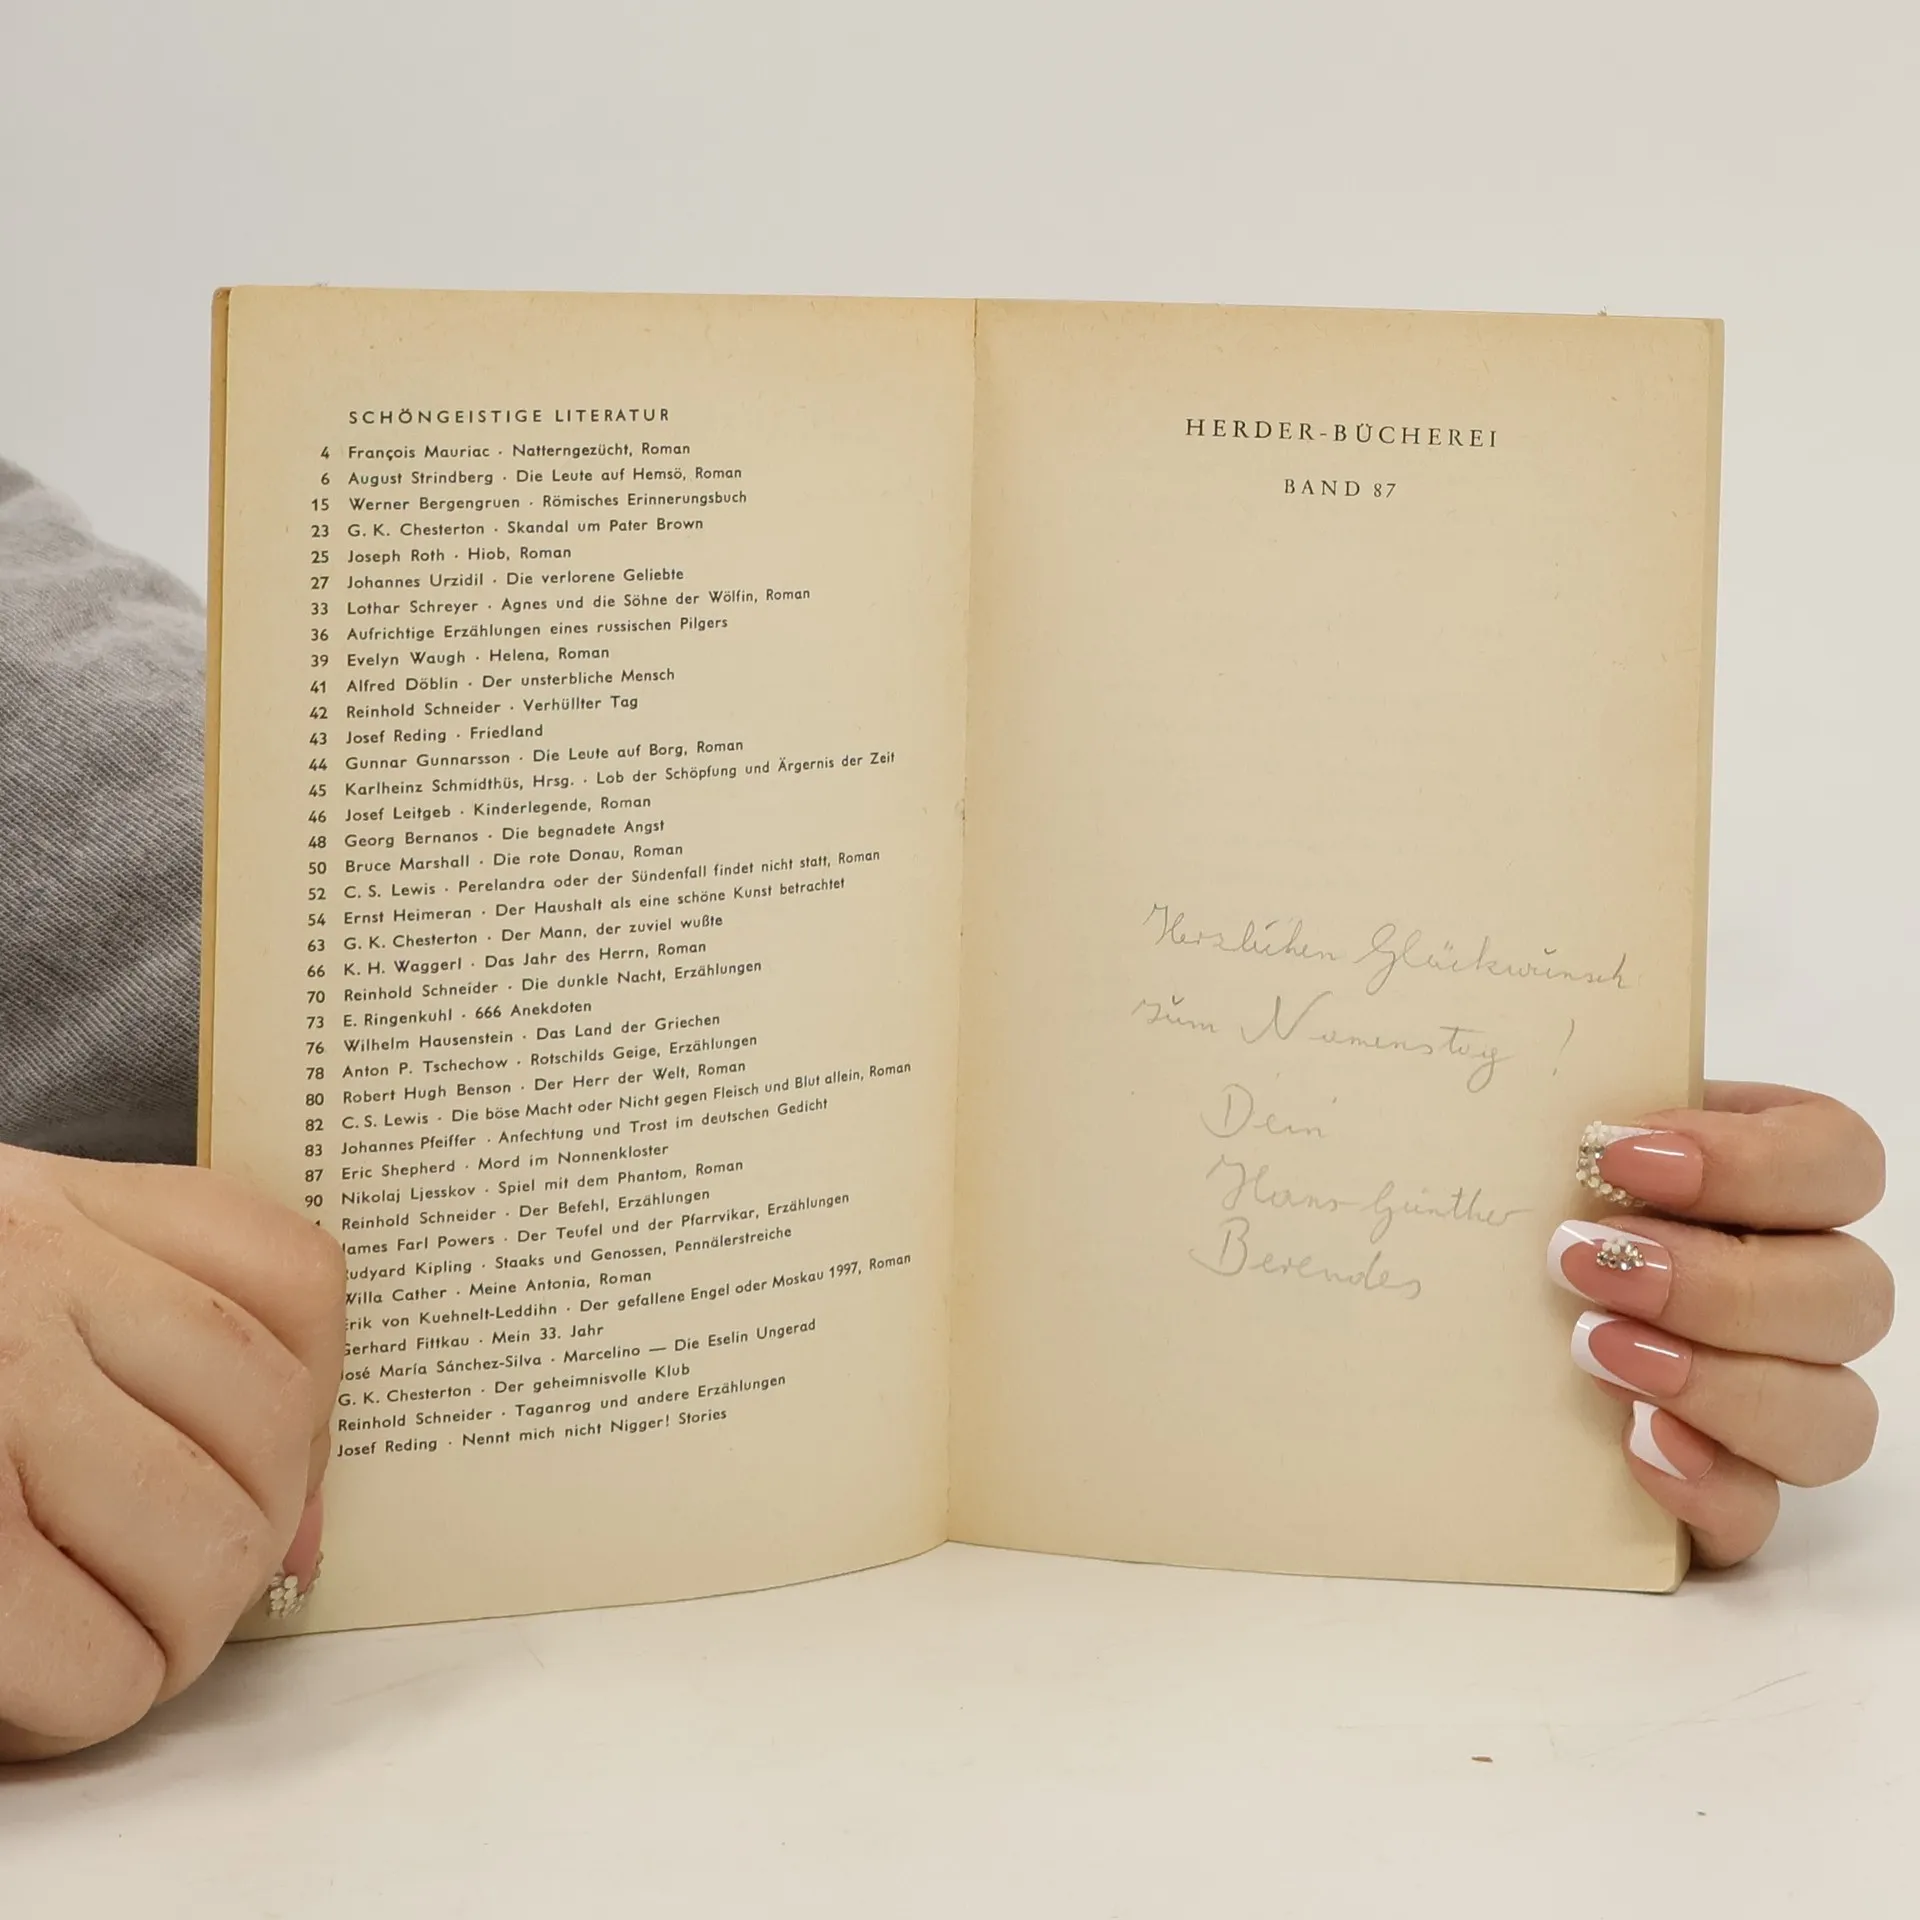 SCHÖNGEISTIGE LITERATUR
4 François Mauriac · Natterngezücht, Roman
6 August Strindberg · Die Leute auf Hemsö, Roman
15 Werner Bergengruen · Römisches Erinnerungsbuch
23 G. K. Chesterton · Skandal um Pater Brown
25 Joseph Roth · Hiob, Roman
27 Johannes Urzidil · Die verlorene Geliebte
33 Lothar Schreyer · Agnes und die Söhne der Wölfin, Roman
36 Aufrichtige Erzählungen eines russischen Pilgers
39 Evelyn Waugh · Helena, Roman
41 Alfred Döblin · Der unsterbliche Mensch
42 Reinhold Schneider · Verhüllter Tag
43 Josef Reding · Friedland
44 Gunnar Gunnarsson · Die Leute auf Borg, Roman
45 Karlheinz Schmidthüs, Hrsg. · Lob der Schöpfung und Ärgernis der Zeit
46 Josef Leitgeb · Kinderlegende, Roman
48 Georg Bernanos · Die begnadete Angst
50 Bruce Marshall · Die rote Donau, Roman
52 C. S. Lewis · Perelandra oder der Sündenfall findet nicht statt, Roman
54 Ernst Heimeran · Der Haushalt als eine schöne Kunst betrachtet
63 G. K. Chesterton · Der Mann, der zuviel wußte
66 K. H. Waggerl · Das Jahr des Herrn, Roman
70 Reinhold Schneider · Die dunkle Nacht, Erzählungen
73 E. Ringenkuhl · 666 Anekdoten
76 Wilhelm Hausenstein · Das Land der Griechen
78 Anton P. Tschechow · Rotschilds Geige, Erzählungen
80 Robert Hugh Benson · Der Herr der Welt, Roman
82 C. S. Lewis · Die böse Macht oder Nicht gegen Fleisch und Blut allein, Roman
83 Johannes Pfeiffer · Anfechtung und Trost im deutschen Gedicht
87 Eric Shepherd · Mord im Nonnenkloster
90 Nikolaj Ljesskov · Spiel mit dem Phantom, Roman
Reinhold Schneider · Der Befehl, Erzählungen
James Farl Powers · Der Teufel und der Pfarrvikar, Erzählungen
Rudyard Kipling · Staaks und Genossen, Pennälerstreiche
Willa Cather · Meine Antonia, Roman
Erik von Kuehnelt-Leddihn · Der gefallene Engel oder Moskau 1997, Roman
Gerhard Fittkau · Mein 33. Jahr
José María Sánchez-Silva · Marcelino — Die Eselin Ungerad
G. K. Chesterton · Der geheimnisvolle Klub
Reinhold Schneider · Taganrog und andere Erzählungen
Josef Reding · Nennt mich nicht Nigger! Stories
HERDER-BÜCHEREI
BAND 87
Herzlichen Glückwunsch
zum Namenstag !
Dein
Hans Günther
Berendes